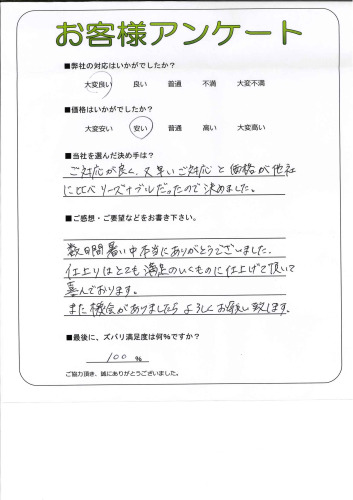 お客様アンケート
■弊社の対応はいかがでしたか?
大変良い 良い 普通 不満 大変不満
■価格はいかがでしたか?
大変安い 安い 普通 高い 大変高い
■当社を選んだ決め手は?
ご対応が良く、又早いご対応と価格が他社
に比べリーズナブルだったので決めました。
■ご感想・ご要望などをお書き下さい。
数日間暑い中本当にありがとうございました。
仕上りはとても満足のいくものに仕上げて頂いて
喜んでおります。
また機会がありましたらよろしくお願い致します。
■最後に、ズバリ満足度は何%ですか?
100 %
ご協力頂き、誠にありがとうございました。